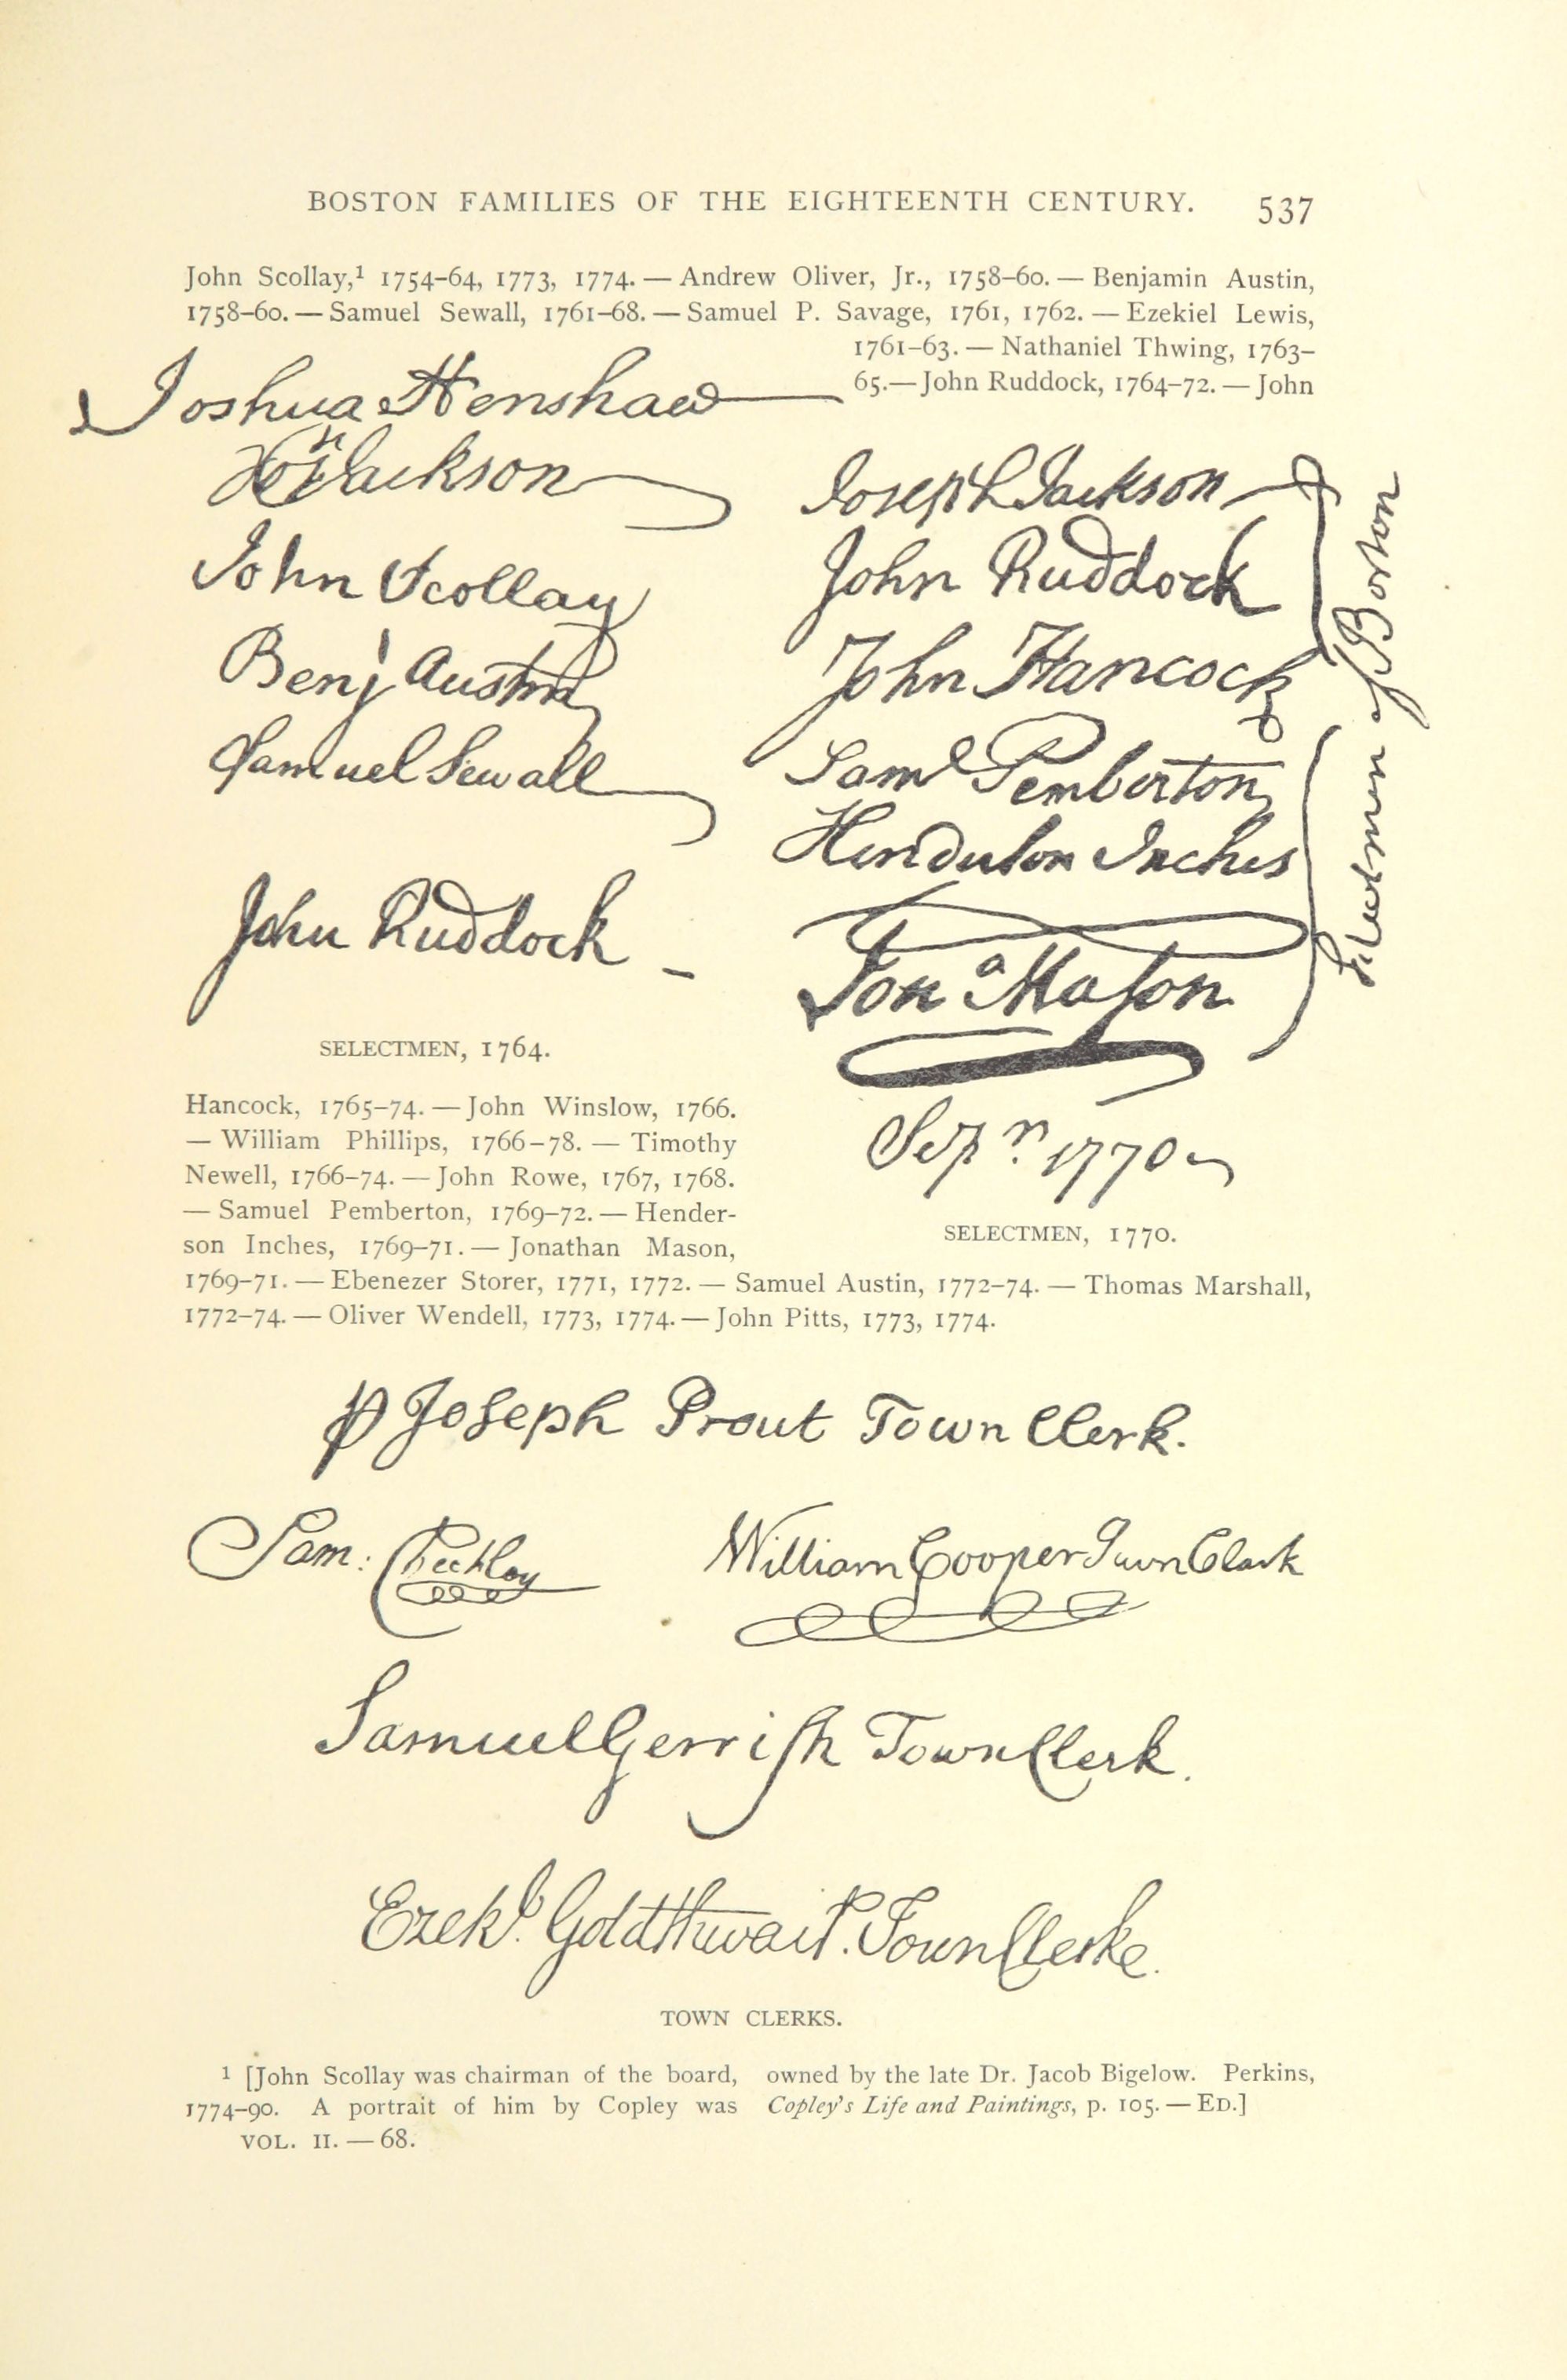 BOSTON FAMILIES OF THE EIGHTEENTH CENTURY. 537
John Scollay,¹ 1754–64, 1773, 1774. — Andrew Oliver, Jr., 1758–60. — Benjamin Austin,
1758–60. — Samuel Sewall, 1761–68. — Samuel P. Savage, 1761, 1762. — Ezekiel Lewis,
1761–63. — Nathaniel Thwing, 1763–
65.—John Ruddock, 1764–72. — John
Joshua Henshaw
Jos Jackson
John Scollay
Benj Austin
Samuel Sewall
John Ruddock
SELECTMEN, 1764.
Joseph Jackson
John Ruddock
John Hancock
Saml Pemberton
Henderson Inches
Jona Mason
Selectmen of Boston
Sepr 1770
SELECTMEN, 1770.
Hancock, 1765–74. — John Winslow, 1766.
— William Phillips, 1766–78. — Timothy
Newell, 1766–74. — John Rowe, 1767, 1768.
— Samuel Pemberton, 1769–72. — Hender-
son Inches, 1769–71. — Jonathan Mason,
1769–71. — Ebenezer Storer, 1771, 1772. — Samuel Austin, 1772–74. — Thomas Marshall,
1772–74. — Oliver Wendell, 1773, 1774. — John Pitts, 1773, 1774.
p Joseph Prout Town Clerk.
Sam: Checkley
William Cooper Town Clark
Samuel Gerrish Town Clerk.
Ezekl. Goldthwait. Town Clerke.
TOWN CLERKS.
¹ [John Scollay was chairman of the board,
1774–90. A portrait of him by Copley was
owned by the late Dr. Jacob Bigelow. Perkins,
Copley's Life and Paintings, p. 105. — ED.]
VOL. II. — 68.